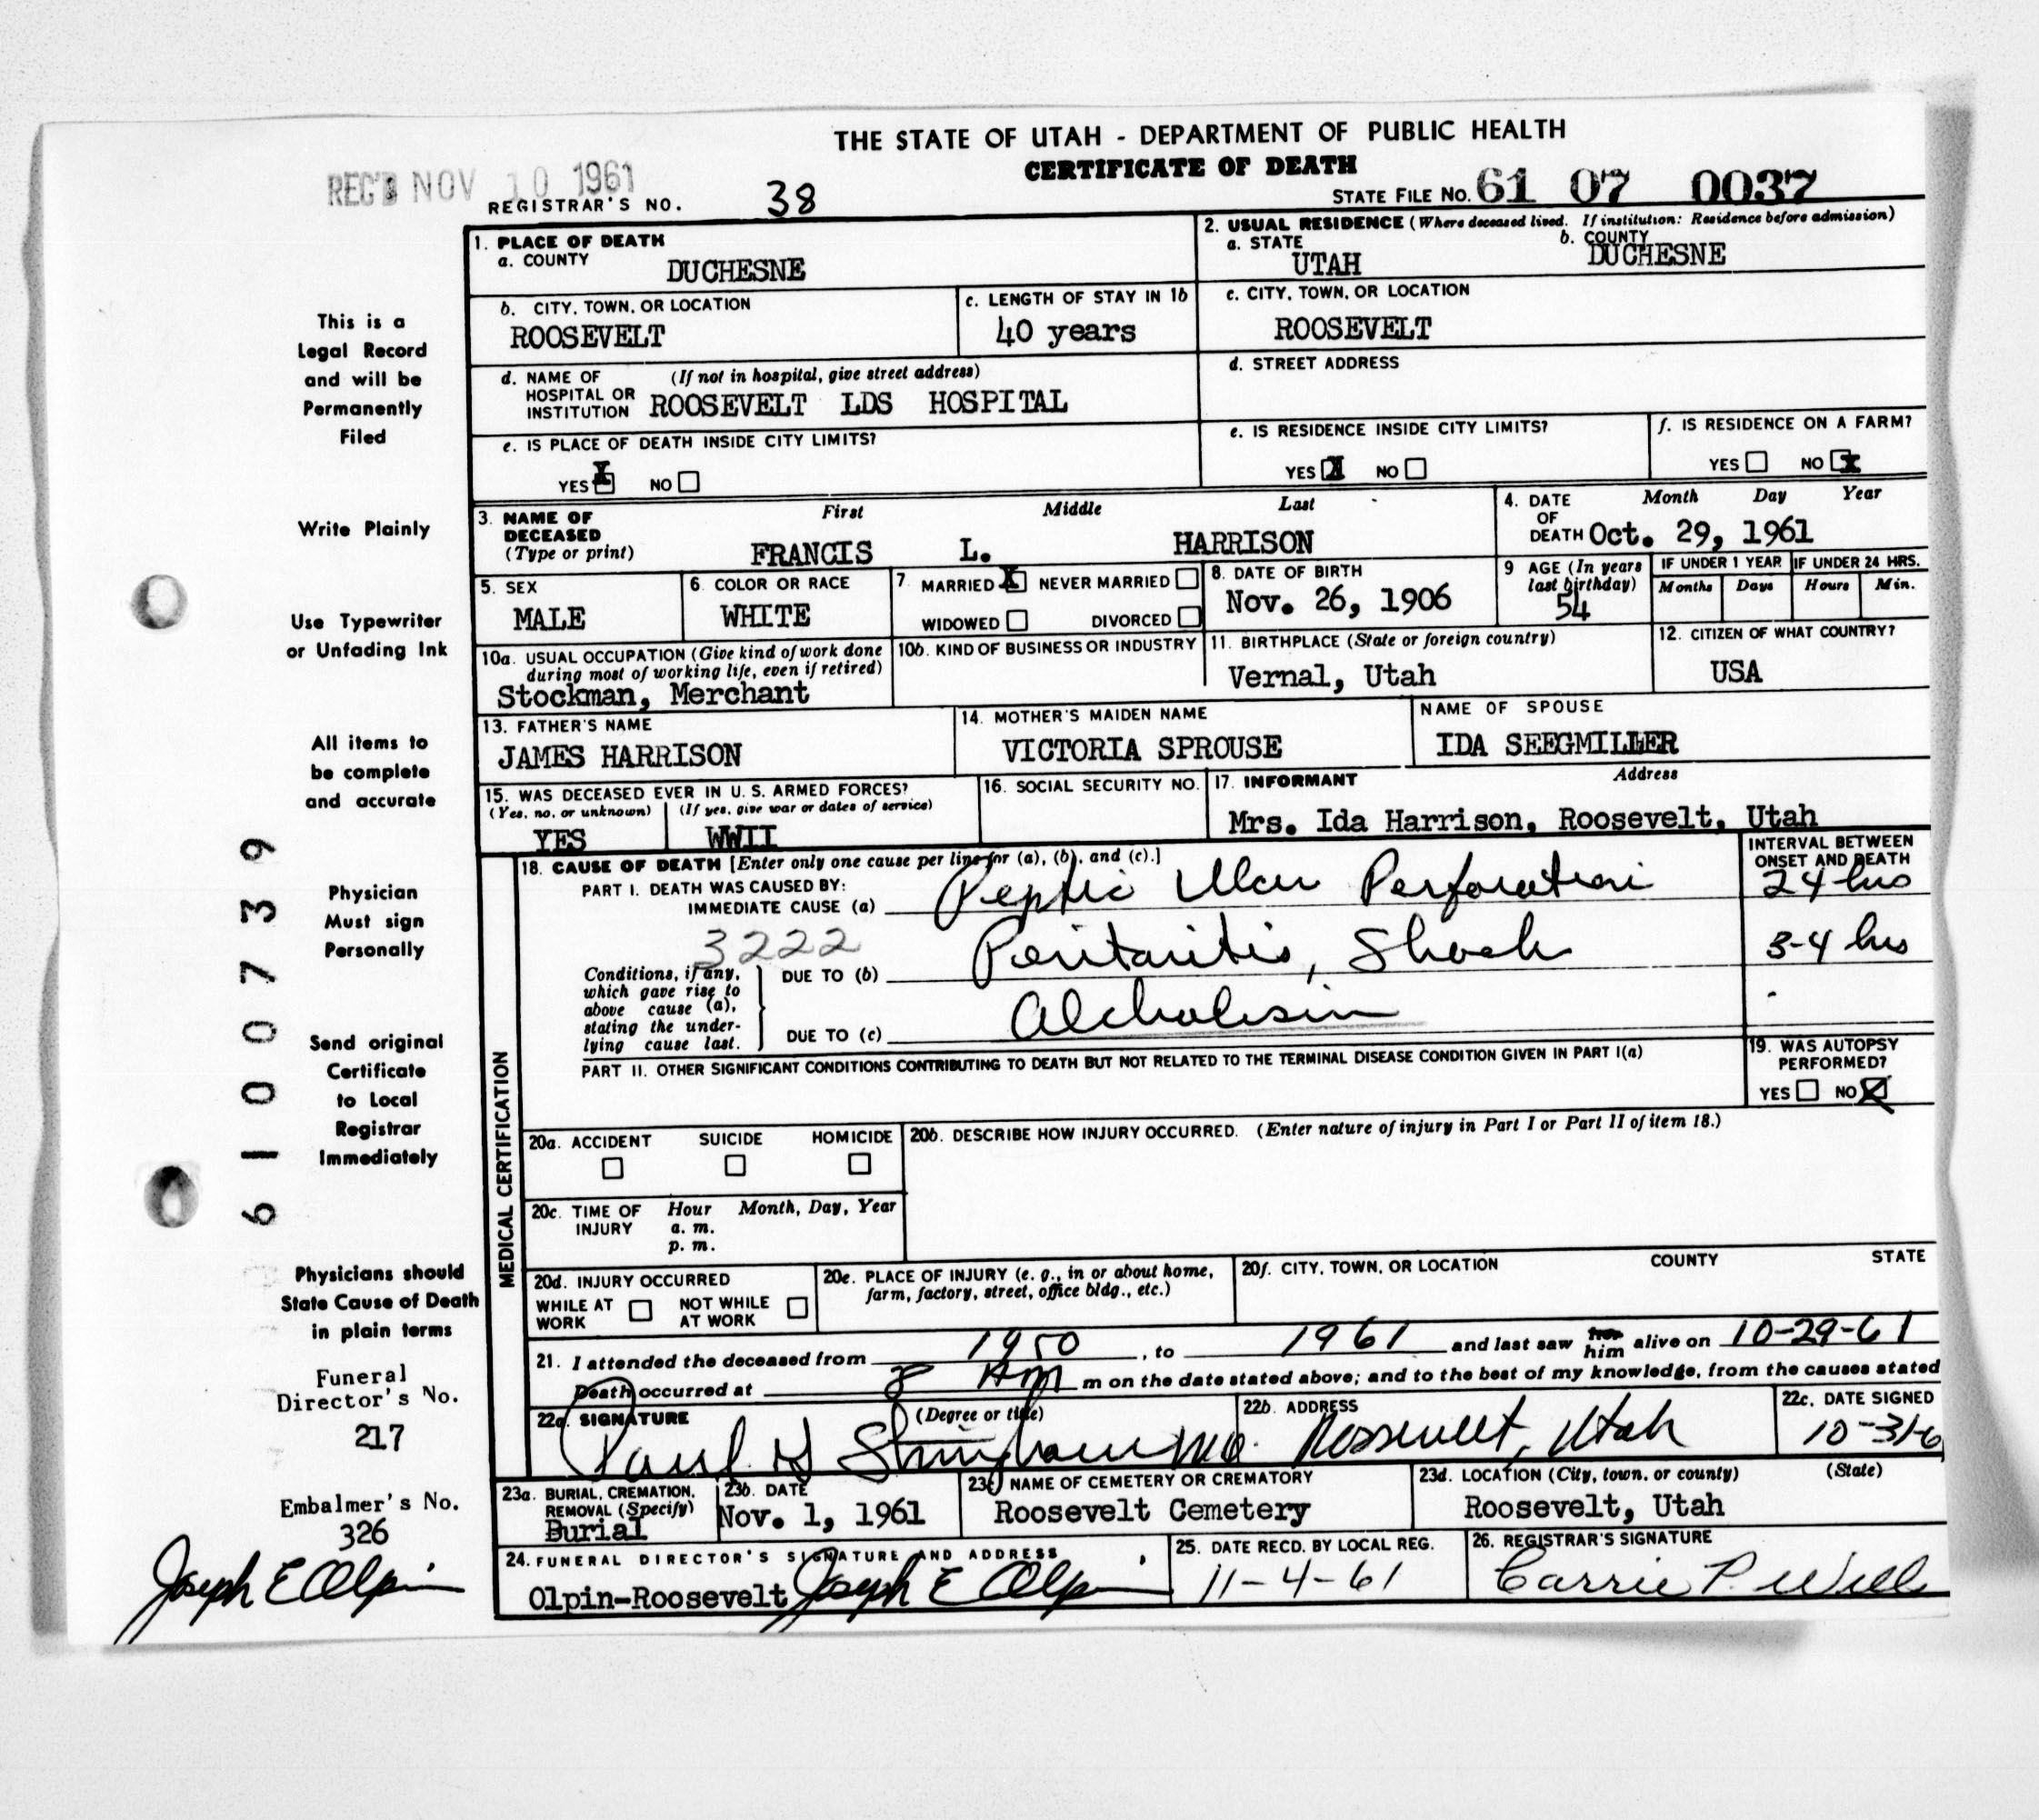 THE STATE OF UTAH - DEPARTMENT OF PUBLIC HEALTH
CERTIFICATE OF DEATH
REG'D NOV 10 1961
REGISTRAR'S NO. 38
STATE FILE NO. 61 07 0037
1. PLACE OF DEATH
a. COUNTY
DUCHESNE
2. USUAL RESIDENCE (Where deceased lived. If institution: Residence before admission)
a. STATE
UTAH
b. COUNTY
DUCHESNE
b. CITY, TOWN, OR LOCATION
ROOSEVELT
c. LENGTH OF STAY IN 1b
40 years
c. CITY, TOWN, OR LOCATION
ROOSEVELT
d. NAME OF HOSPITAL OR INSTITUTION (If not in hospital, give street address)
ROOSEVELT LDS HOSPITAL
d. STREET ADDRESS
e. IS PLACE OF DEATH INSIDE CITY LIMITS?
YES X NO
e. IS RESIDENCE INSIDE CITY LIMITS?
YES X NO
f. IS RESIDENCE ON A FARM?
YES NO X
3. NAME OF DECEASED (Type or print)
First Middle Last
FRANCIS L. HARRISON
4. DATE OF DEATH
Month Day Year
Oct. 29, 1961
5. SEX
MALE
6. COLOR OR RACE
WHITE
7. MARRIED X NEVER MARRIED
WIDOWED DIVORCED
8. DATE OF BIRTH
Nov. 26, 1906
9 AGE (In years last birthday)
54
IF UNDER 1 YEAR
Months Days
IF UNDER 24 HRS.
Hours Min.
10a. USUAL OCCUPATION (Give kind of work done during most of working life, even if retired)
Stockman, Merchant
10b. KIND OF BUSINESS OR INDUSTRY
11. BIRTHPLACE (State or foreign country)
Vernal, Utah
12. CITIZEN OF WHAT COUNTRY?
USA
13. FATHER'S NAME
JAMES HARRISON
14. MOTHER'S MAIDEN NAME
VICTORIA SPROUSE
NAME OF SPOUSE
IDA SEEGMILLER
15. WAS DECEASED EVER IN U. S. ARMED FORCES?
(Yes, no, or unknown) (If yes, give war or dates of service)
YES WWII
16. SOCIAL SECURITY NO.
17. INFORMANT Address
Mrs. Ida Harrison, Roosevelt, Utah
MEDICAL CERTIFICATION
18. CAUSE OF DEATH [Enter only one cause per line for (a), (b), and (c).]
INTERVAL BETWEEN ONSET AND DEATH
PART I. DEATH WAS CAUSED BY:
IMMEDIATE CAUSE (a) Peptic Ulcer Perforation 24 hrs
3222
Conditions, if any, which gave rise to above cause (a), stating the underlying cause last.
DUE TO (b) Peritonitis, Shock 3-4 hrs
DUE TO (c) Alcholisim
PART II. OTHER SIGNIFICANT CONDITIONS CONTRIBUTING TO DEATH BUT NOT RELATED TO THE TERMINAL DISEASE CONDITION GIVEN IN PART I(a)
19. WAS AUTOPSY PERFORMED?
YES NO X
20a. ACCIDENT SUICIDE HOMICIDE
20b. DESCRIBE HOW INJURY OCCURRED. (Enter nature of injury in Part I or Part II of item 18.)
20c. TIME OF INJURY
Hour Month, Day, Year
a. m.
p. m.
20d. INJURY OCCURRED
WHILE AT WORK NOT WHILE AT WORK
20e. PLACE OF INJURY (e. g., in or about home, farm, factory, street, office bldg., etc.)
20f. CITY, TOWN, OR LOCATION COUNTY STATE
21. I attended the deceased from 1950, to 1961 and last saw her him alive on 10-29-61
Death occurred at 8 AM m on the date stated above; and to the best of my knowledge, from the causes stated
22a. SIGNATURE (Degree or title)
Paul G Stringham MD.
22b. ADDRESS
Roosevelt, Utah
22c. DATE SIGNED
10-31-6
23a. BURIAL, CREMATION, REMOVAL (Specify)
Burial
23b. DATE
Nov. 1, 1961
23c NAME OF CEMETERY OR CREMATORY
Roosevelt Cemetery
23d. LOCATION (City, town, or county) (State)
Roosevelt, Utah
24. FUNERAL DIRECTOR'S SIGNATURE AND ADDRESS
Olpin-Roosevelt Joseph E Olpin
25. DATE RECD. BY LOCAL REG.
11-4-61
26. REGISTRAR'S SIGNATURE
Carrie P. Will
This is a
Legal Record
and will be
Permanently
Filed
Write Plainly
Use Typewriter
or Unfading Ink
All items to
be complete
and accurate
Physician
Must sign
Personally
Send original
Certificate
to Local
Registrar
Immediately
Physicians should
State Cause of Death
in plain terms
Funeral
Director's No.
217
Embalmer's No.
326
Joseph E Olpin
61007739